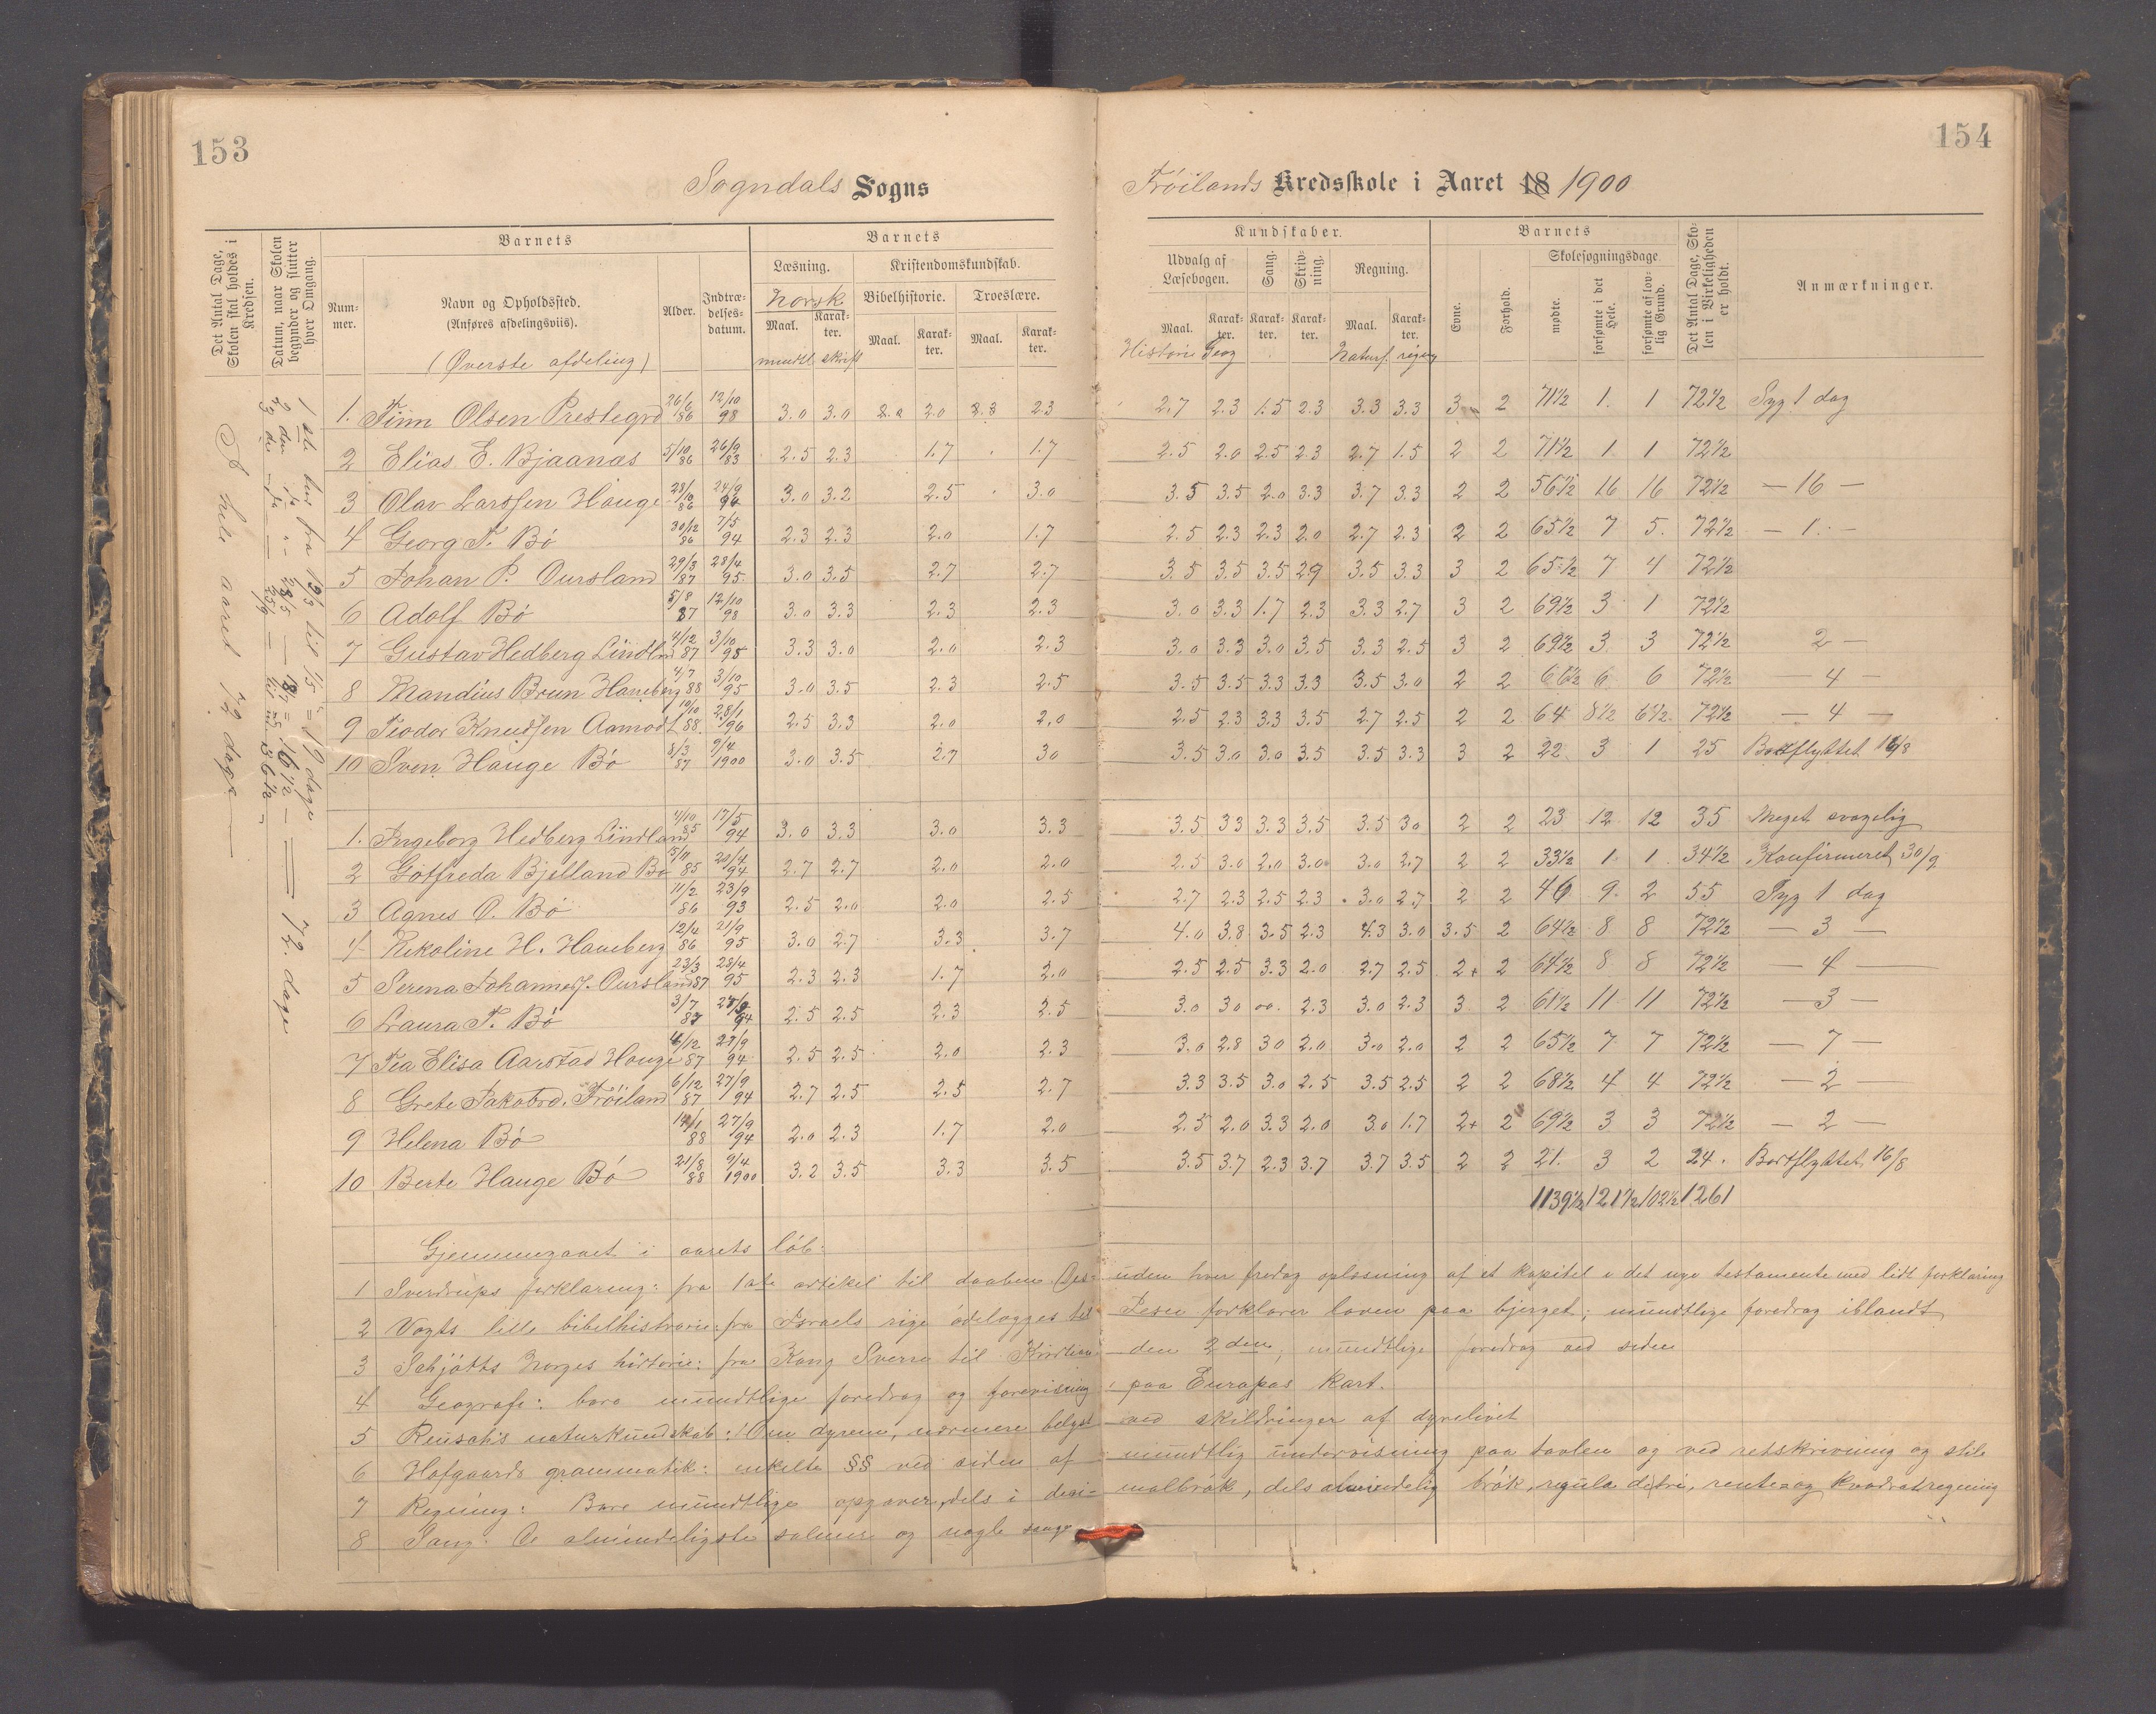 153
154
Sogndals Sogns
Frøilands Kredsskole i Aaret 18 1900
Det Antal Dage, Skolen skal holdes i Kredsen.
Datum, naar Skolen begynder og slutter hver Omgang.
Barnets
Barnets
Kundskaber.
Barnets
Num-mer.
Navn og Opholdssted.
(Anføres afdelingsviis).
(Øverste afdeling)
Alder.
Indtræ-delses-datum.
Læsning.
Norsk
Maal. Karak-ter.
mundtl. skriftl
Kristendomskundskab.
Bibelhistorie. Troeslære.
Maal. Karak-ter. Maal. Karak-ter.
Udvalg af Læsebogen.
Sang. Skriv-ning. Regning.
Maal. Karak-ter. Karak-ter. Karak-ter. Maal. Karak-ter.
Historie Geog Naturf. regng
Evne. Forhold.
Skolesøgningsdage.
mødte. forsømte i det Hele. forsømte af lov-lig Grund.
Det Antal Dage, Sko-len i Virkeligheden er holdt.
Anmærkninger.
1. Finn Olsen Prestegrd 26/6 86 12/10 98 3.0 3.0 2.0 2.3 2.7 2.3 1.5 2.3 3.3 3.3 3 2 71½ 1. 1 72½ Syg 1 dag
2 Elias E. Bjaanas 5/10 86 26/9 83 2.5 2.3 1.7 1.7 2.5 2.0 2.5 2.3 2.7 1.5 2 2 71½ 1 1 72½
3 Olav Larssen Hauge 28/10 86 24/9 94 3.0 3.2 2.5 3.0 3.5 3.5 2.0 3.3 3.7 3.3 2 2 56½ 16 16 72½ — 16 —
4 Georg T. Bö 30/12 86 7/5 94 2.3 2.3 2.0 1.7 2.5 2.3 2.3 2.0 2.7 2.3 2 2 65½ 7 5. 72½ — 1. —
5 Johan P. Oursland 29/3 87 28/4 95. 3.0 3.5 2.7 2.7 3.5 3.5 3.5 2.9 3.5 3.3 3 2 65½ 7 4 72½
6 Adolf Bö 5/8 87 12/10 98 3.0 3.3 2.3 2.3 3.0 3.3 1.7 2.3 3.3 2.7 3 2 69½ 3 1 72½
7 Gustav Hedberg Lindlnd 4/12 87 3/10 95 3.3 3.0 2.0 2.3 3.0 3.3 3.0 3.5 3.3 2.5 3 2 69½ 3 3 72½ 2 —
8 Mandius Brun Hameberg 4/7 88 3/10 95 3.0 3.5 2.3 2.5 3.5 3.5 3.3 3.3 3.5 3.0 2 2 66½ 6 6 72½ — 4 —
9 Teodor Knudsen Aamodt 10/10 88. 28/1 96 2.5 3.3 2.0 2.0 2.5 2.3 3.3 3.5 2.7 2.5 2 2 64 8½ 6½ 72½ — 4 —
10 Sven Hauge Bö 8/3 87 9/4 1900 3.0 3.5 2.7 30 3.5 3.0 3.0 3.5 3.5 3.3 3 2 22 3 1 25 Bortflyttet 16/8
1. Ingeborg Hedberg Lindland 4/10 85 17/5 94 3.0 3.3 3.0 3.3 3.5 33 3.3 3.5 3.5 30 2 2 23 12 12 35 Meget svagelig
2 Gotfreda Bjelland Bö 15/11 85 20/4 94 2.7 2.7 2.0 2.0 2.5 3.0 2.0 3.0 3.0 2.7 2 2 33½ 1. 1 34½ Konfirmeret 30/9
3 Agnes O. Bö 11/2 86 23/9 93 2.5 2.0 2.0 2.5 2.7 2.3 2.5 2.3 3.0 2.7 2 2 46 9. 2 55 Syg 1 dag
4 Rekoline H. Hameberg 12/4 86 21/9 95 3.0 2.7 3.3 3.7 4.0 3.8 3.5 2.3 4.3 3.0 3.5 2 64½ 8 8 72½ — 3 —
5 Serena Johannesf. Oursland 23/3 87 28/4 95 2.3 2.3 1.7 2.0 2.5 2.5 3.3 2.0 2.7 2.5 2+ 2 64½ 8 8 72½ — 4 —
6 Laura T. Bö 3/7 87 94 2.5 2.5 2.3 2.5 3.0 30 oo. 2.3 3.0 2.3 3 2 61½ 11 11 72½ — 3 —
7 Tea Elisa Aarstad Hauge 87 27/9 94 2.5 2.5 2.0 2.3 3.0 2.8 30 2.0 3.0 2.0 2 2 65½ 7 7 72½ — 7 —
8 Grete Jakobsd. Fröiland 6/12 87 27/9 94 2.7 2.5 2.5 2.7 3.3 3.5 3.0 2.5 3.5 2.5 2 2 68½ 4 4 72½ — 2 —
9 Helena Bö 88 27/9 94 2.0 2.3 1.7 2.0 2.5 2.0 3.3 2.0 3.0 1.7 2+ 2 69½ 3 3 72½ — 2 —
10 Berte Hauge Bö 21/8 88 9/4 1900 3.2 3.5 3.3 3.5 3.5 3.7 2.3 3.7 3.7 3.5 2 2 21. 3 2 24. Bortflyttet 16/8
1139½ 121½ 102½ 1261
Gjennemgaaet i aarets löb:
1 Sverdrups forklaring: fra 1ste artikel til daaben. Des-uden hver fredag oplæsning af et kapitel i det nye testamente med lidt forklaring
2 Vogts lille bibelhistorie: fra Israels rige ödelægges til Jesu forklarer loven paa bjerget; mundtlige foredrag iblandt
3 Schjötts Norges historie: fra Kong Sverre til Kristian den 2den; mundtlige foredrag ved siden
4 Geografi: bare mundtlige foredrag og forevisning paa Europas kart.
5 Reusch's naturkundskab: Om dyrene, nærmere belyst ved skildringer af dyrelivet
6 Hofgaards grammatik: enkelte §§ ved siden af mundtlig undervisning paa tavlen og ved retskrivning og stile
7 Regning: Bare mundtlige opgaver, dels i deci-malbrök, dels almindelig brök, regula detri, rente og kvadratregning
8 Sang: De almindeligste salmer og nogle sange